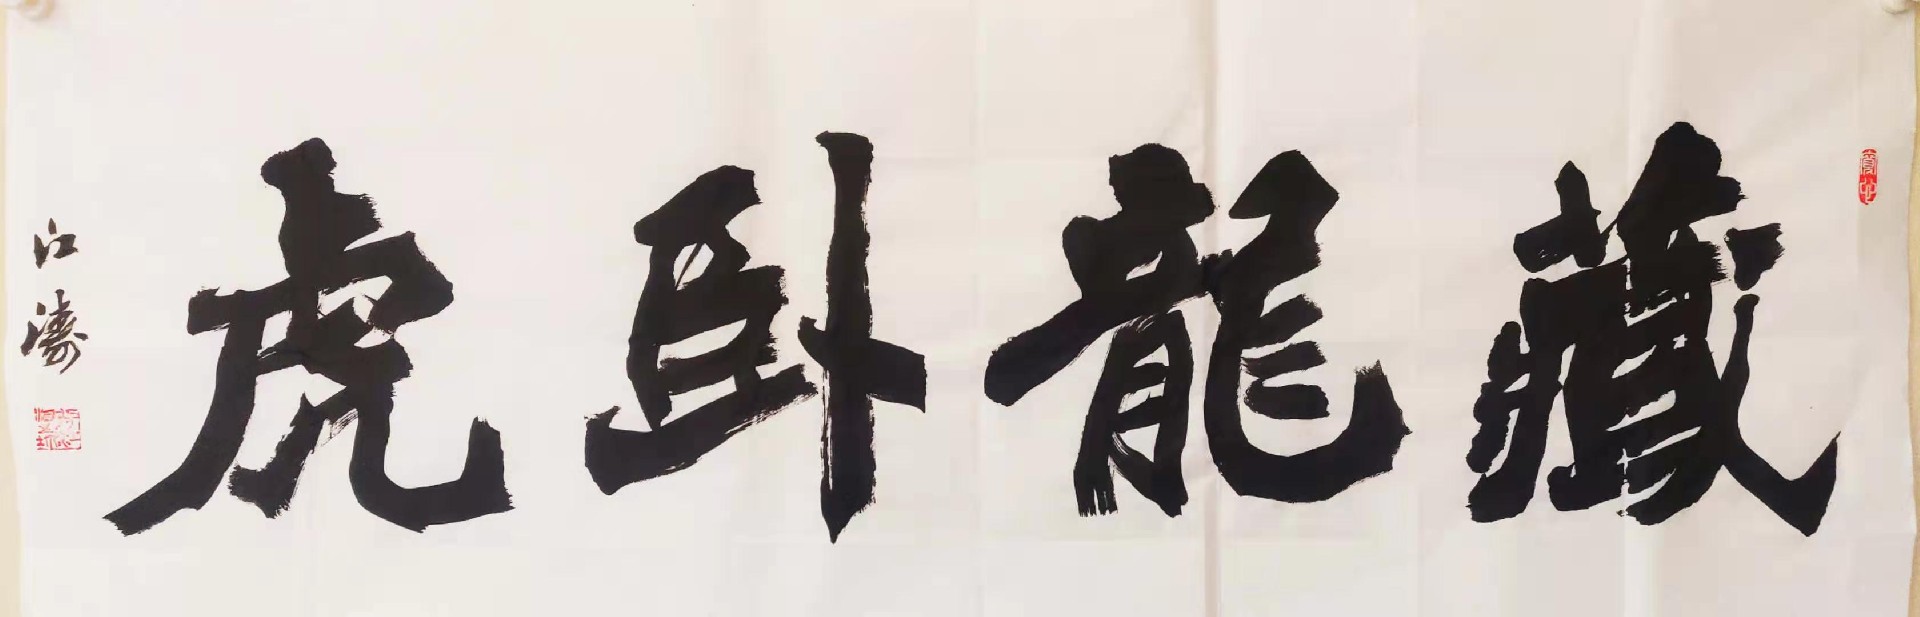 藏龍臥虎
江濤